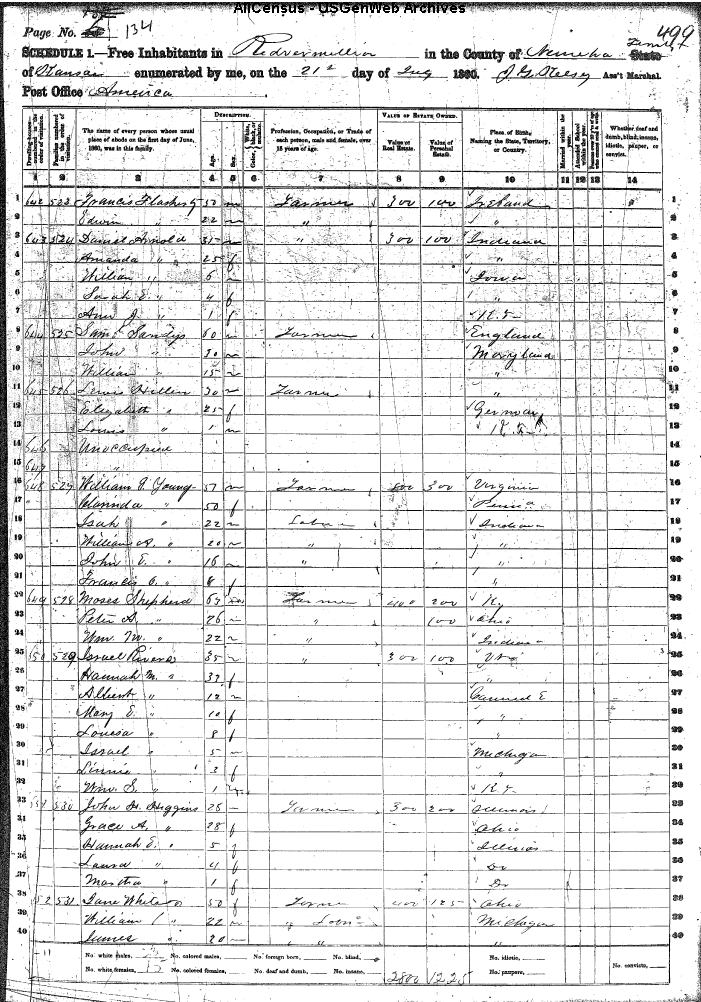 AllCensus - USGenWeb Archives
Page No. 134
499
SCHEDULE 1.—Free Inhabitants in Redvermillion in the County of Nemeha State
of Kansas enumerated by me, on the 21st day of July 1860. Ass't Marshal.
Post Office America
Dwelling-houses numbered in the order of visitation.
Families numbered in the order of visitation.
The name of every person whose usual place of abode on the first day of June, 1860, was in this family.
DESCRIPTION.
Age.
Sex.
Color, White, black, or mulatto.
Profession, Occupation, or Trade of each person, male and female, over 15 years of age.
VALUE OF ESTATE OWNED.
Value of Real Estate.
Value of Personal Estate.
Place of Birth, Naming the State, Territory, or Country.
Married within the year.
Attended School within the year.
Whether deaf and dumb, blind, insane, idiotic, pauper, or convict.
1 2 3 4 5 6 7 8 9 10 11 12 13 14
1 642 523 Francis 52 m Farmer 300 100 Ireland 1
2 Edwin " 22 m " " 2
3 643 524 Daniel Arnold 35 m " 300 100 Indiana 3
4 Amanda " 25 f " 4
5 William " 6 m Iowa 5
6 Sarah E. " 4 f " 6
7 Ann J. " 1 f K.T. 7
8 644 525 Saml Sandys 60 m Farmer England 8
9 John " 20 m Maryland 9
10 William " 15 m " 10
11 645 526 Lewis Hillin 30 m Farmer " 11
12 Elizabeth " 25 f Germany 12
13 Louis " 1 m K.T. 13
14 646 Unoccupied 14
15 647 " 15
16 648 527 William P. Young 57 m Farmer 800 300 Virginia 16
17 " 50 f Penna 17
18 Isah " 22 m Labor Indiana 18
19 William R. " 20 m " " 19
20 John E. " 16 m " " 20
21 Francis C. " 8 f " 21
22 649 528 Moses Shepherd 63 m Farmer 400 200 Ky 22
23 Peter A. " 26 m " 100 Ohio 23
24 Wm. M. " 22 m " Indiana 24
25 650 529 Israel Rivers 35 m " 300 100 25
26 Hannah M. " 37 f " 26
27 Albert " 12 m 27
28 Mary E. " 10 f " 28
29 Louesa " 8 f " 29
30 Israel " 5 m Michigan 30
31 Linnie " 3 f " 31
32 Wm. S. " 1 m K.T. 32
33 651 530 John H. Huggins 28 m Farmer 300 200 Illinois 33
34 Grace A. " 28 f Ohio 34
35 Hannah E. " 5 f Illinois 35
36 Laura " 4 f Do 36
37 Martha " 1 f Do 37
38 652 531 50 f Farmer 400 125 Ohio 38
39 William " 22 m Michigan 39
40 James " 20 m " " 40
No. white males, No. colored males, No. foreign born, No. blind, No. idiotic,
No. white females, 17 No. colored females, No. deaf and dumb, No. insane, 2800 1225 No. paupers, No. convicts,